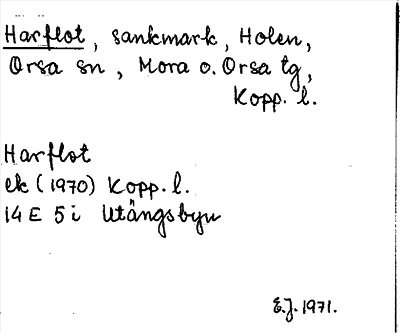 Harflot, sankmark, Holen,
Orsa sn, Mora o. Orsa tg,
Kopp. l.
Harflot
ek (1970) Kopp. l.
14 E 5 i Utängsbyn
E.J. 1971.